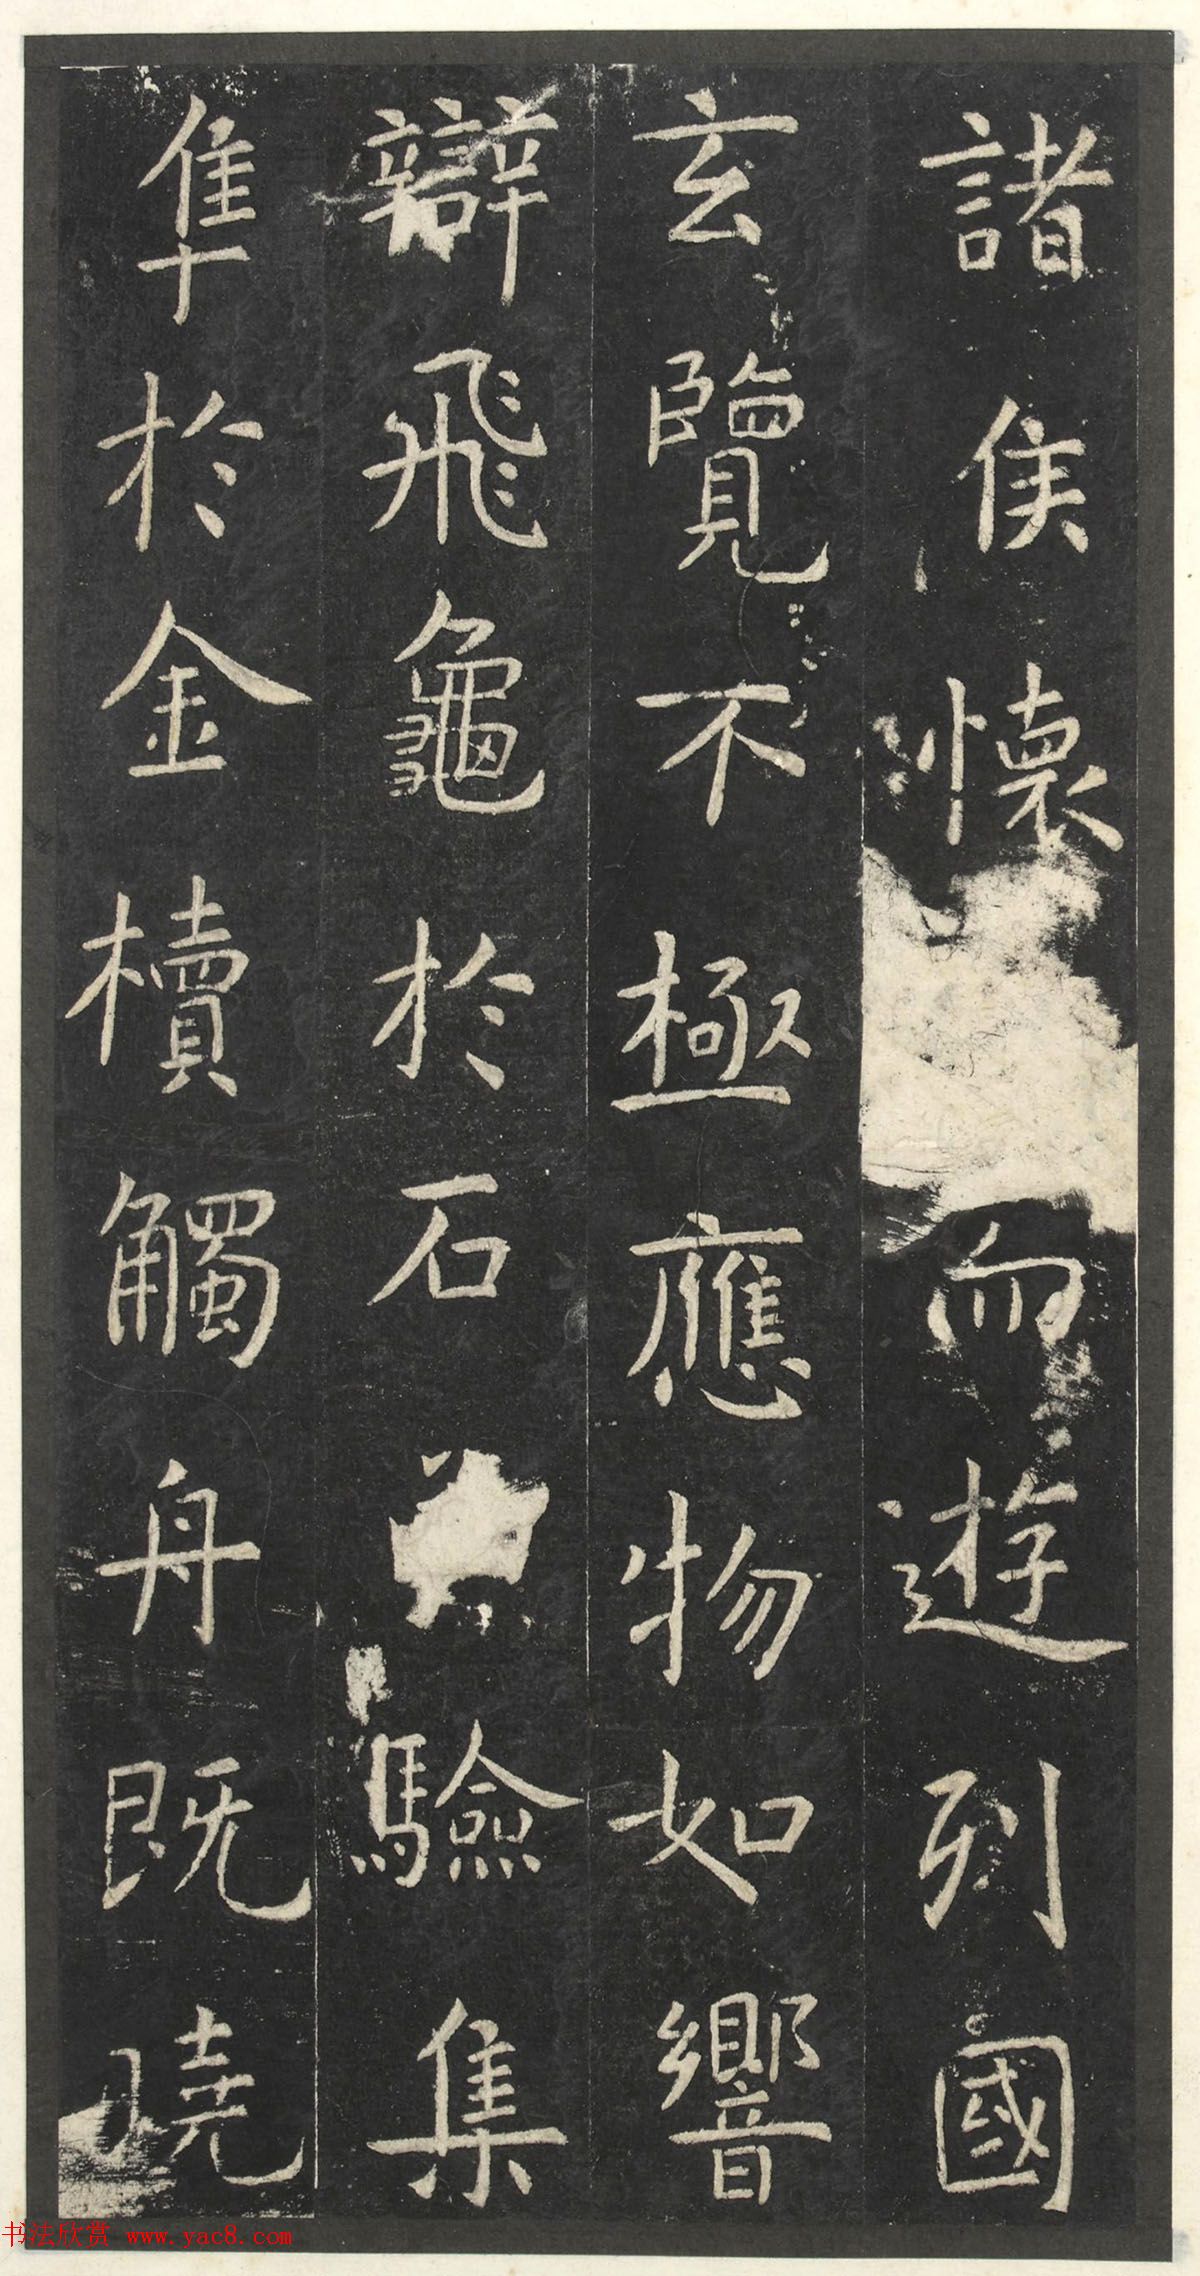 諸侯懷而遊列國
玄覽不極應物如響
辯飛龜於石驗集
隼於金櫝觸舟既曉
书法欣赏 www.yac8.com